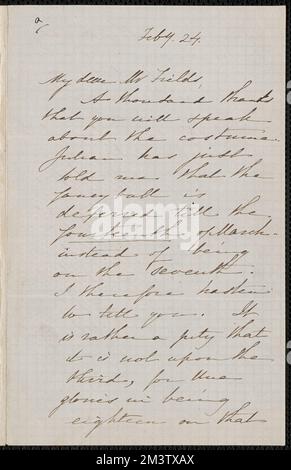 Feby 24.
My dear Mr Fields,
A thousand thanks
that you will speak
about the costume.
Julian has just
told me that the
fancy ball is
deferred till the
fourteenth of March
instead of being
on the seventh.
I therefore hasten
to tell you. It
is rather a pity that
it is not upon the
third, for Una
glories in being
eighteen on that
alamy
www.alamy.com
Image ID: 2K8WTXAX